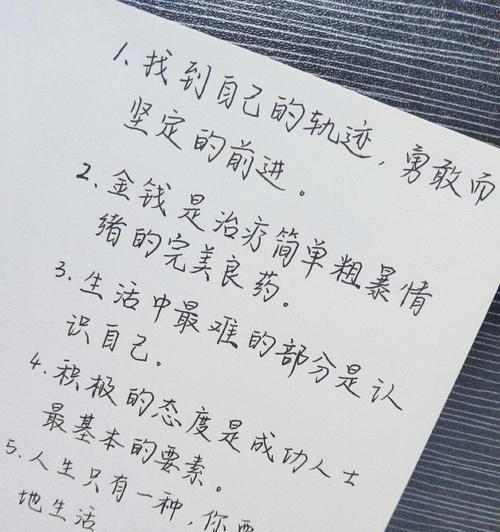 1. 找到自己的轨迹，勇敢而
坚定的前进。
2. 金钱是治疗简单粗暴情
绪的完美良药。
3. 生活中最难的部分是认
识自己。
4. 积极的态度是成功人士
最基本的要素。
5. 人生只有一种，你要
地生活